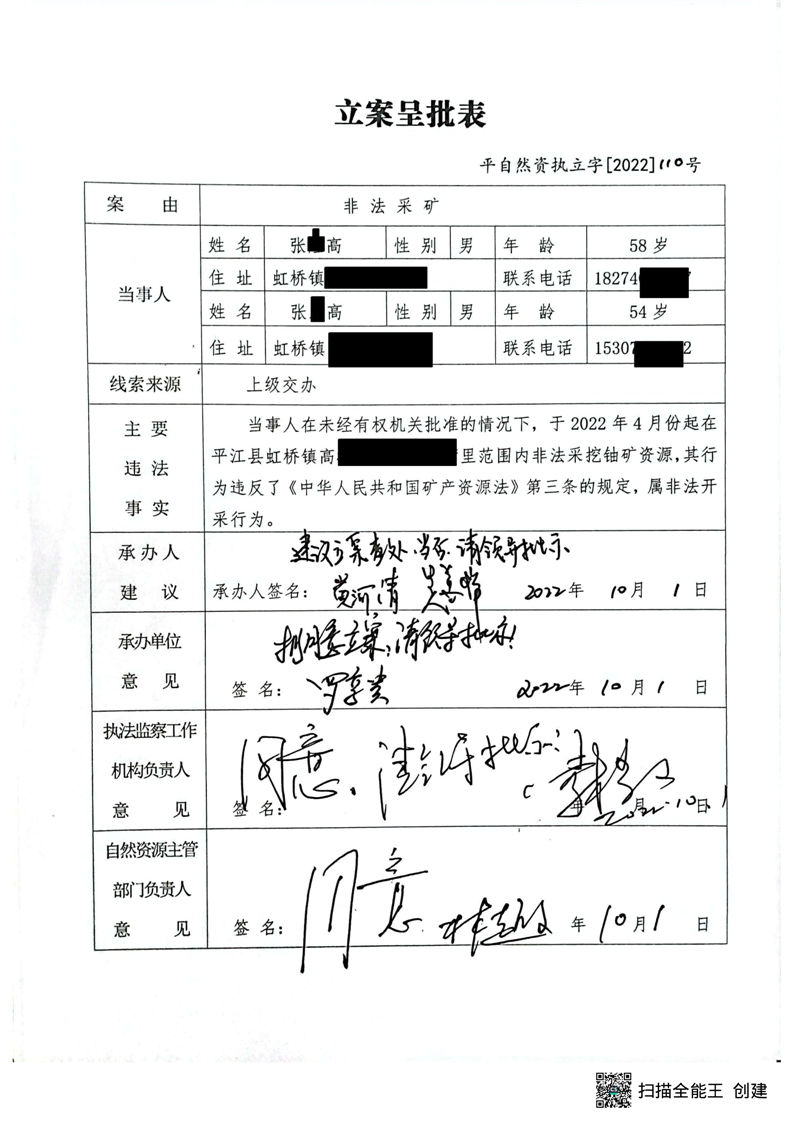 立案呈批表
平自然资执立字[2022]110号
案 由 非法采矿
当事人
姓名 张 高 性别 男 年龄 58岁
住址 虹桥镇 联系电话 18274
姓名 张 高 性别 男 年龄 54岁
住址 虹桥镇 联系电话 15307 2
线索来源 上级交办
主要违法事实
当事人在未经有权机关批准的情况下，于2022年4月份起在
平江县虹桥镇高 里范围内非法采挖铀矿资源,其行
为违反了《中华人民共和国矿产资源法》第三条的规定，属非法开
采行为。
承办人建议
建议立案查处 当否 请领导批示
承办人签名： 黄河清 2022年10月1日
承办单位意见
拟同意立案，请领导批示！
签名： 罗享贵 2022年10月1日
执法监察工作机构负责人意见
同意. 请领导批示
签名： 年 月 日
2022.10.1
自然资源主管部门负责人意见
同意.
签名： 年10月1日
扫描全能王 创建